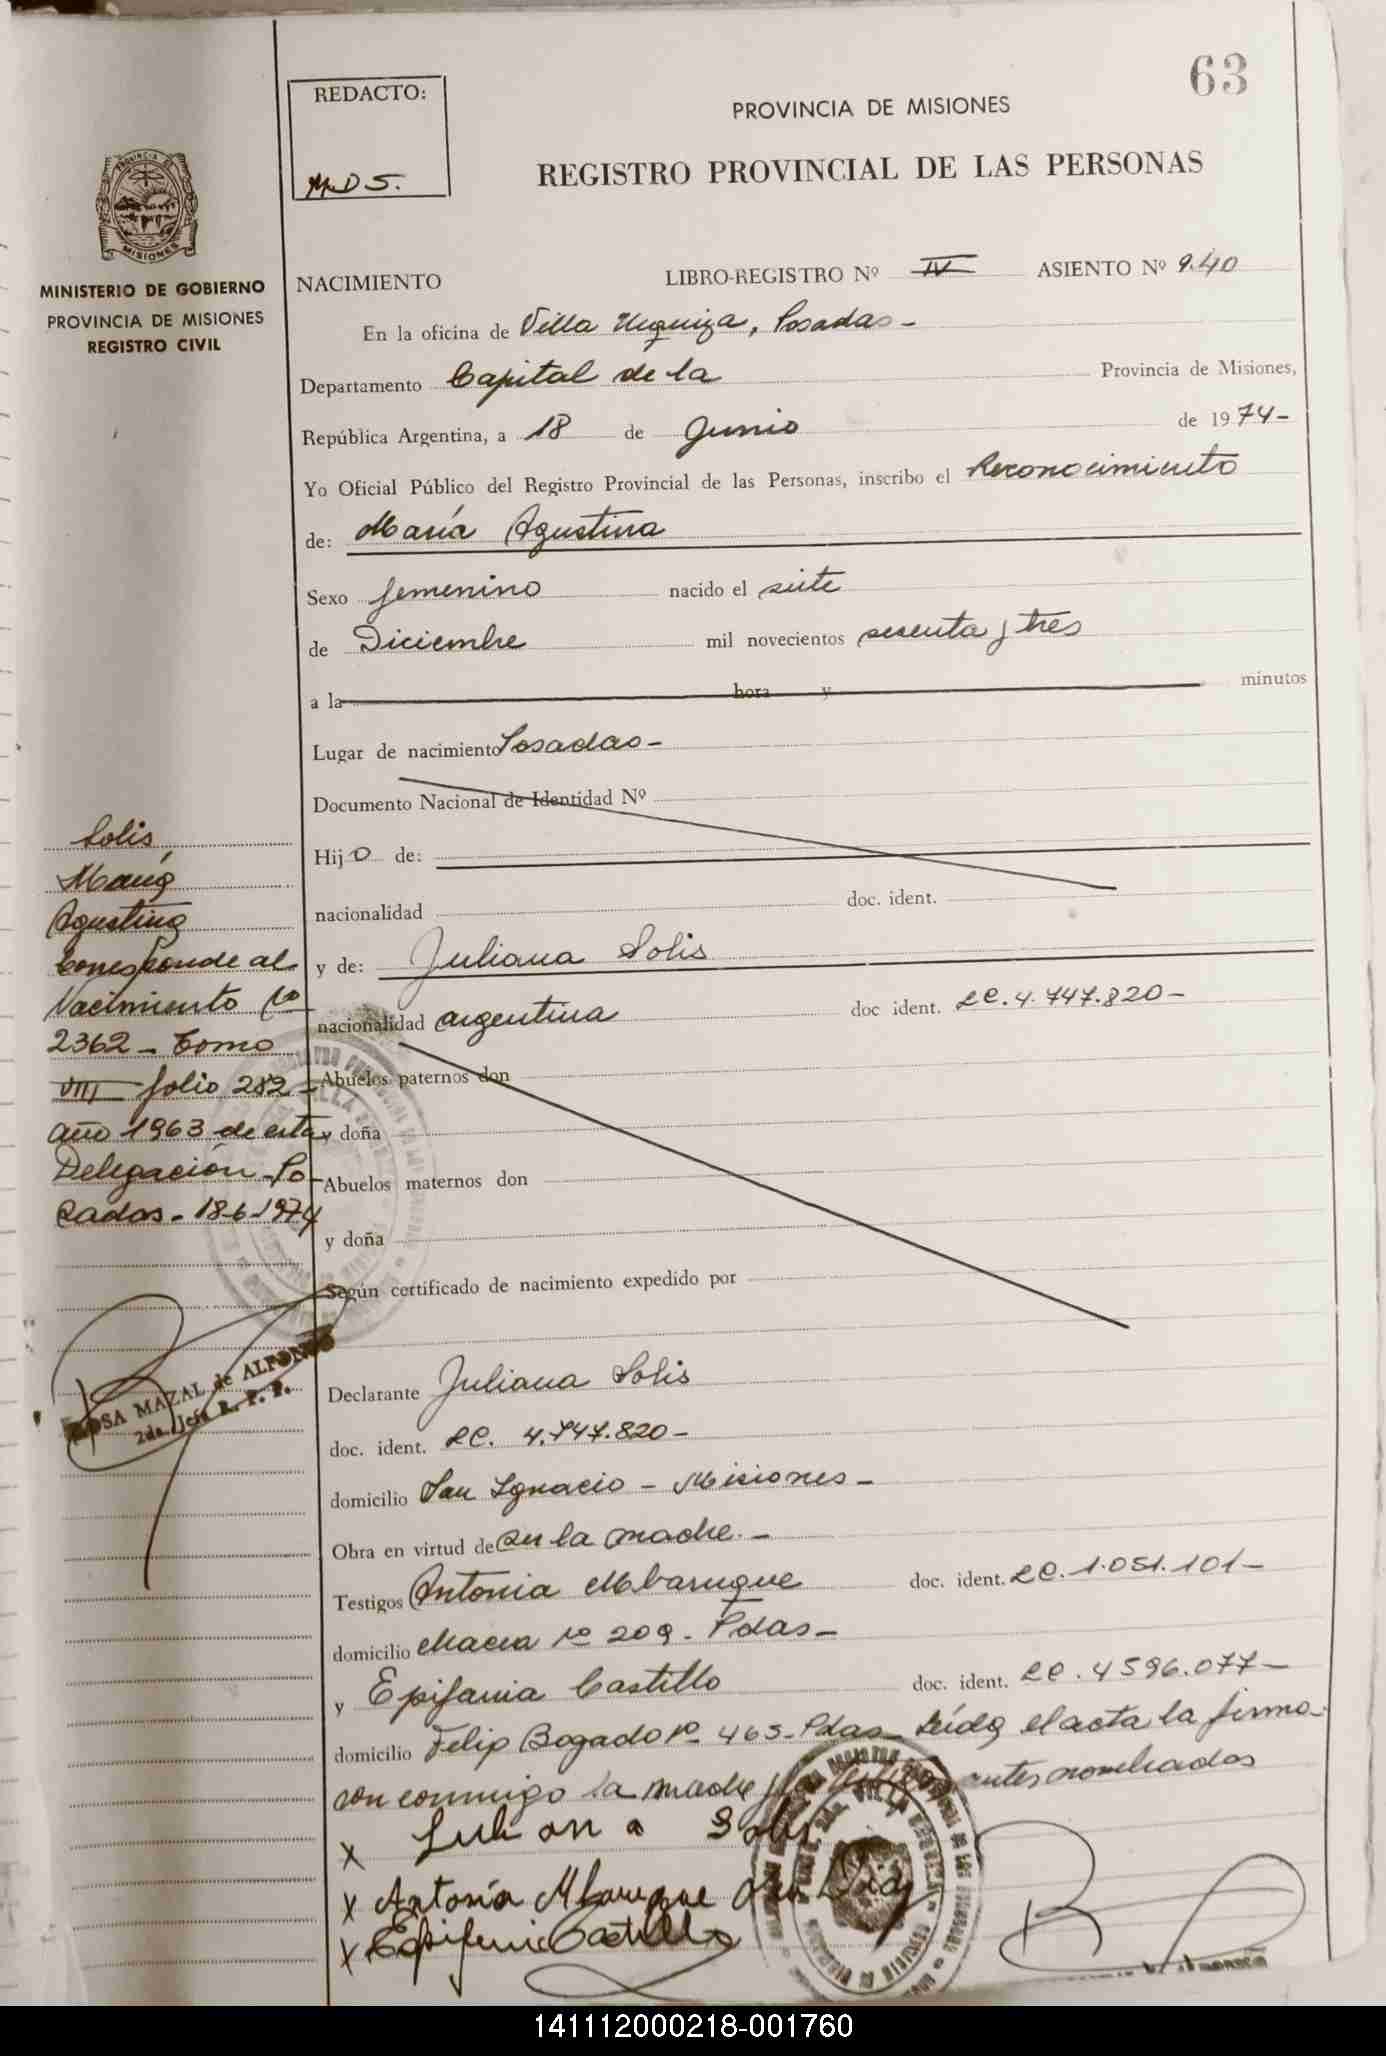 63
REDACTO:
M.D S.
PROVINCIA DE MISIONES
REGISTRO PROVINCIAL DE LAS PERSONAS
PROVINCIA DE
MISIONES
MINISTERIO DE GOBIERNO
PROVINCIA DE MISIONES
REGISTRO CIVIL
NACIMIENTO LIBRO-REGISTRO Nº IV ASIENTO Nº 940
En la oficina de Villa Urquiza, Posadas-
Departamento Capital de la Provincia de Misiones,
República Argentina, a 18 de Junio de 1974-
Yo Oficial Público del Registro Provincial de las Personas, inscribo el Reconocimiento
de: María Agustina
Sexo femenino nacido el siete
de Diciembre mil novecientos sesenta y tres
a la hora y minutos
Lugar de nacimiento Posadas-
Documento Nacional de Identidad Nº
Hijo de:
nacionalidad doc. ident.
y de: Juliana Solis
nacionalidad argentina doc ident. LC. 4.747.820-
Abuelos paternos don
y doña
Abuelos maternos don
y doña
Según certificado de nacimiento expedido por
Declarante Juliana Solis
doc. ident. LC. 4.747.820-
domicilio San Ignacio - Misiones-
Obra en virtud de ser la madre.-
Testigos Antonia Mbarugue doc. ident. LC. 1.051.101-
domicilio nº 209. Pdas-
y Epifania Castillo doc. ident. LC. 4596.077-
domicilio Felip Bogado nº 465-Pdas- Leída el acta la firma-
ron conmigo la madre y antes nombrados
x Juliana Solis
x Antonia
x Epifania Castillo
Solis,
María
Agustina
Corresponde al
Nacimiento nº
2362 - Tomo
VIII folio 282-
año 1963 de esta
Delegación Po-
sadas - 18-6-1974
ROSA MAZAL de ALFONSO
2da. Jefe R. P. P.
141112000218-001760